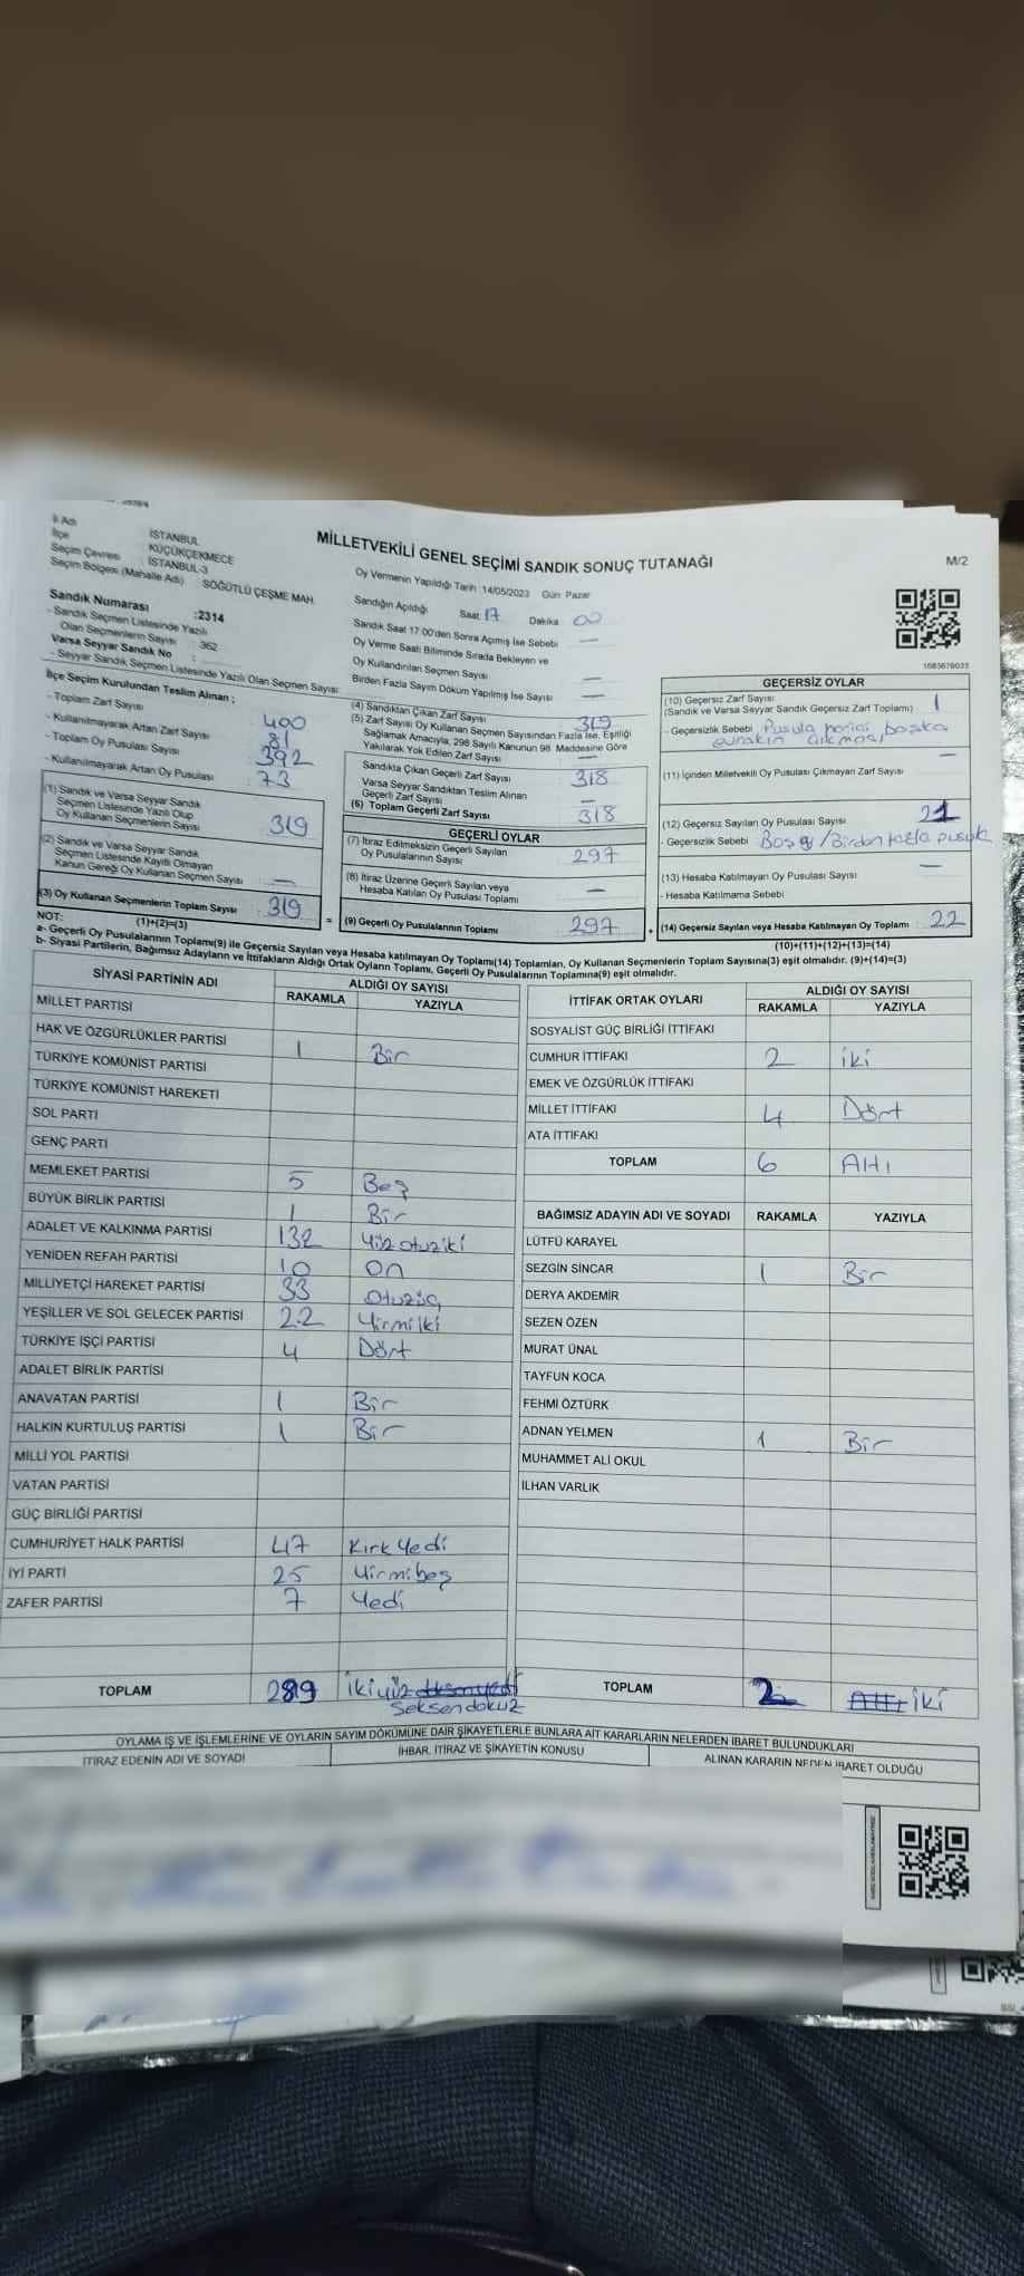 MİLLETVEKİLİ GENEL SEÇİMİ SANDIK SONUÇ TUTANAĞI
M/2
İl Adı İSTANBUL
İlçe KÜÇÜKÇEKMECE
Seçim Çevresi İSTANBUL-3
Seçim Bölgesi (Mahalle Adı) SÖĞÜTLÜ ÇEŞME MAH.
Sandık Numarası :2314
- Sandık Seçmen Listesinde Yazılı
Olan Seçmenlerin Sayısı 362
Varsa Seyyar Sandık No :
- Seyyar Sandık Seçmen Listesinde Yazılı Olan Seçmen Sayısı
Oy Vermenin Yapıldığı Tarih :14/05/2023 Gün: Pazar
Sandığın Açıldığı Saat: 17 Dakika 00
Sandık Saat 17:00'den Sonra Açılmış İse Sebebi —
Oy Verme Saati Bitiminde Sırada Bekleyen ve
Oy Kullandırılan Seçmen Sayısı —
Birden Fazla Sayım Döküm Yapılmış İse Sayısı —
1085676033
İlçe Seçim Kurulundan Teslim Alınan ;
- Toplam Zarf Sayısı 400
- Kullanılmayarak Artan Zarf Sayısı 81
- Toplam Oy Pusulası Sayısı 392
- Kullanılmayarak Artan Oy Pusulası 73
(1) Sandık ve Varsa Seyyar Sandık
Seçmen Listesinde Yazılı Olup
Oy Kullanan Seçmenlerin Sayısı 319
(2) Sandık ve Varsa Seyyar Sandık
Seçmen Listesinde Kayıtlı Olmayan
Kanun Gereği Oy Kullanan Seçmen Sayısı —
(3) Oy Kullanan Seçmenlerin Toplam Sayısı 319
(1)+(2)=(3)
(4) Sandıktan Çıkan Zarf Sayısı 319
(5) Zarf Sayısı Oy Kullanan Seçmen Sayısından Fazla İse, Eşitliği
Sağlamak Amacıyla, 298 Sayılı Kanunun 98. Maddesine Göre
Yakılarak Yok Edilen Zarf Sayısı —
Sandıkta Çıkan Geçerli Zarf Sayısı 318
Varsa Seyyar Sandıktan Teslim Alınan
Geçerli Zarf Sayısı —
(6) Toplam Geçerli Zarf Sayısı 318
GEÇERLİ OYLAR
(7) İtiraz Edilmeksizin Geçerli Sayılan
Oy Pusulalarının Sayısı 297
(8) İtiraz Üzerine Geçerli Sayılan veya
Hesaba Katılan Oy Pusulası Toplamı —
= (9) Geçerli Oy Pusulalarının Toplamı 297 +
GEÇERSİZ OYLAR
(10) Geçersiz Zarf Sayısı 1
(Sandık ve Varsa Seyyar Sandık Geçersiz Zarf Toplamı)
- Geçersizlik Sebebi Pusula harici başka
evrakın çıkması
(11) İçinden Milletvekili Oy Pusulası Çıkmayan Zarf Sayısı —
(12) Geçersiz Sayılan Oy Pusulası Sayısı 21
- Geçersizlik Sebebi Boş / Birden fazla pusula
(13) Hesaba Katılmayan Oy Pusulası Sayısı —
- Hesaba Katılmama Sebebi
(14) Geçersiz Sayılan veya Hesaba Katılmayan Oy Toplamı 22
(10)+(11)+(12)+(13)=(14)
NOT:
a- Geçerli Oy Pusulalarının Toplamı(9) ile Geçersiz Sayılan veya Hesaba katılmayan Oy Toplamı(14) Toplamları, Oy Kullanan Seçmenlerin Toplam Sayısına(3) eşit olmalıdır. (9)+(14)=(3)
b- Siyasi Partilerin, Bağımsız Adayların ve İttifakların Aldığı Ortak Oyların Toplamı, Geçerli Oy Pusulalarının Toplamına(9) eşit olmalıdır.
SİYASİ PARTİNİN ADI ALDIĞI OY SAYISI
RAKAMLA YAZIYLA
MİLLET PARTİSİ
HAK VE ÖZGÜRLÜKLER PARTİSİ 1 Bir
TÜRKİYE KOMÜNİST PARTİSİ
TÜRKİYE KOMÜNİST HAREKETİ
SOL PARTİ
GENÇ PARTİ
MEMLEKET PARTİSİ 5 Beş
BÜYÜK BİRLİK PARTİSİ 1 Bir
ADALET VE KALKINMA PARTİSİ 132 Yüz otuziki
YENİDEN REFAH PARTİSİ 10 On
MİLLİYETÇİ HAREKET PARTİSİ 33 Otuzüç
YEŞİLLER VE SOL GELECEK PARTİSİ 22 Yirmiİki
TÜRKİYE İŞÇİ PARTİSİ 4 Dört
ADALET BİRLİK PARTİSİ
ANAVATAN PARTİSİ 1 Bir
HALKIN KURTULUŞ PARTİSİ 1 Bir
MİLLİ YOL PARTİSİ
VATAN PARTİSİ
GÜÇ BİRLİĞİ PARTİSİ
CUMHURİYET HALK PARTİSİ 47 Kırk Yedi
İYİ PARTİ 25 Yirmibeş
ZAFER PARTİSİ 7 Yedi
TOPLAM 289 ikiyüz
seksendokuz
İTTİFAK ORTAK OYLARI ALDIĞI OY SAYISI
RAKAMLA YAZIYLA
SOSYALİST GÜÇ BİRLİĞİ İTTİFAKI
CUMHUR İTTİFAKI 2 iki
EMEK VE ÖZGÜRLÜK İTTİFAKI
MİLLET İTTİFAKI 4 Dört
ATA İTTİFAKI
TOPLAM 6 Altı
BAĞIMSIZ ADAYIN ADI VE SOYADI RAKAMLA YAZIYLA
LÜTFÜ KARAYEL
SEZGİN SİNCAR 1 Bir
DERYA AKDEMİR
SEZEN ÖZEN
MURAT ÜNAL
TAYFUN KOCA
FEHMİ ÖZTÜRK
ADNAN YELMEN 1 Bir
MUHAMMET ALİ OKUL
İLHAN VARLIK
TOPLAM 2 Altı iki
OYLAMA İŞ VE İŞLEMLERİNE VE OYLARIN SAYIM DÖKÜMÜNE DAİR ŞİKAYETLERLE BUNLARA AİT KARARLARIN NELERDEN İBARET BULUNDUKLARI
İTİRAZ EDENİN ADI VE SOYADI İHBAR, İTİRAZ VE ŞİKAYETİN KONUSU ALINAN KARARIN NEDEN İBARET OLDUĞU